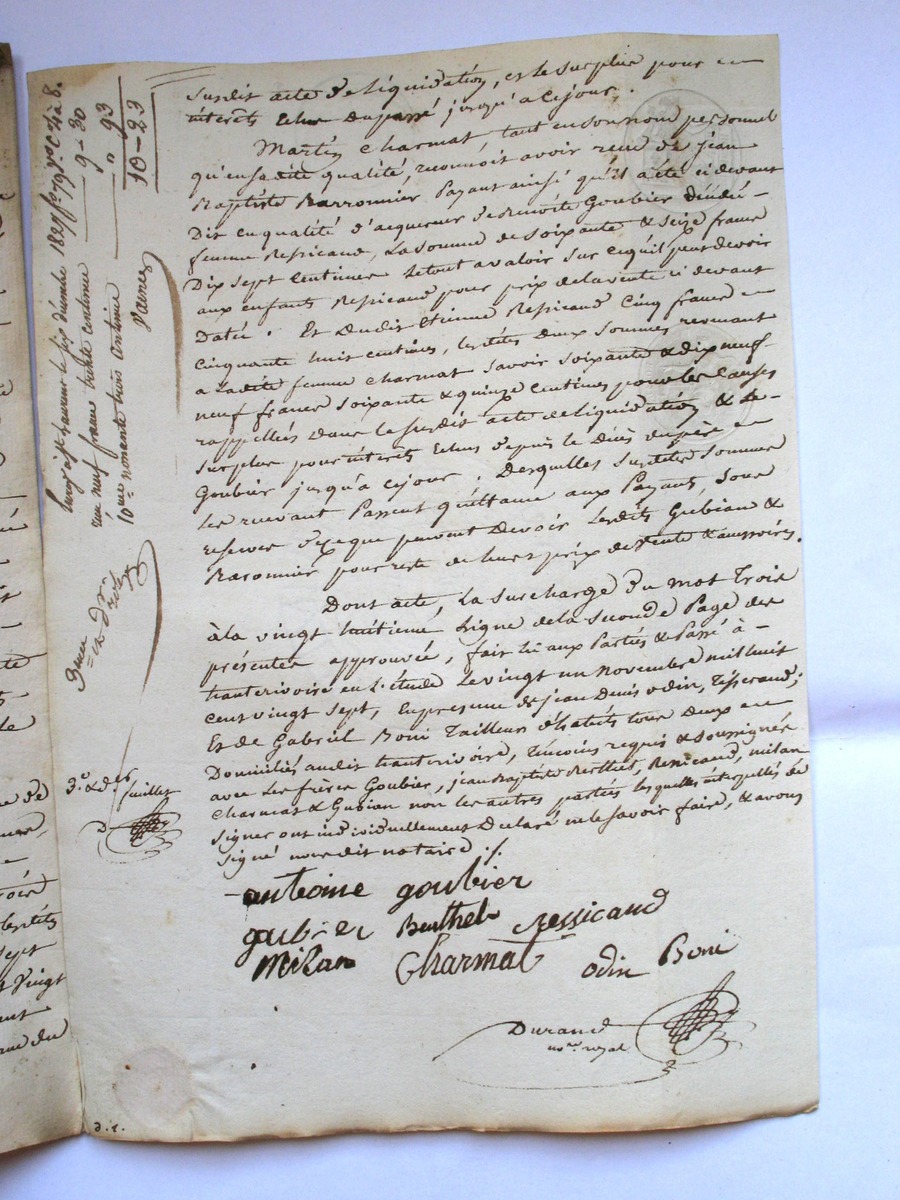 susdit acte de liquidation, et le surplus pour
interets echus du passé jusqu'a ce jour.
Martin Charmat, tant en son nom personnel
qu'en sa dite qualité, reconnoit avoir recu de jean
Baptiste Barronnier Payant ainsi qu'il a été ci devant
Dit en qualité d'acquereur de Benoite Goubier
femme Ressicaud, La somme de soixante & seize francs
Dix sept Centimes le tout a valoir sur ce qu'il peut devoir
aux enfants Ressicaud pour prix de la vente ci devant
Datée. Et Dudit Etienne Ressicaud Cinq francs
Cinquante huit centimes, lesdites deux sommes revenant
a Ladite femme Charmat savoir soixante & dix neuf
neuf francs soixante & quinze centimes pour les Causes
rappellées dans le susdit acte de liquidation & Le
surplus pour interets echus depuis le Décès du père
Goubier jusqu'a ce jour. Desquelles susdites sommes
Les recevant Passent quittance aux Payants, sous
reserve de ce que peuvent Devoir Lesdits Gubian &
Baronnier pour reste de leurs prix de Vente & accessoires.
Dont acte, La surcharge du mot Trois
à la vingt huitieme Ligne de la seconde Page des
présentes approuvée, fait lu aux Parties & Passé à
hauterivoire en L'étude Le vingt un novembre mil huit
Cent vingt sept, En presence de jean Denis odin, Tisserand;
Et de Gabriel Boni Tailleur d'habits tous deux
Domiciliés audit hauterivoire, Temoins requis & soussignés
avec Les frères Goubier, jean Baptiste Berthet, Ressicaud, milan
Charmat & Gubian non les autres parties lesquelles interpellés de
signer ont individuellement Declaré ne le savoir faire, & avons
signé nous dit notaire ./.
antoine goubier
goubier Berthet Ressicaud
Milan Charmat odin Boni
Durand
nore royal
9-30
" 93
10-23
neuf francs trente centimes
10me nonante trois centimes
3e & der
feuillet
D